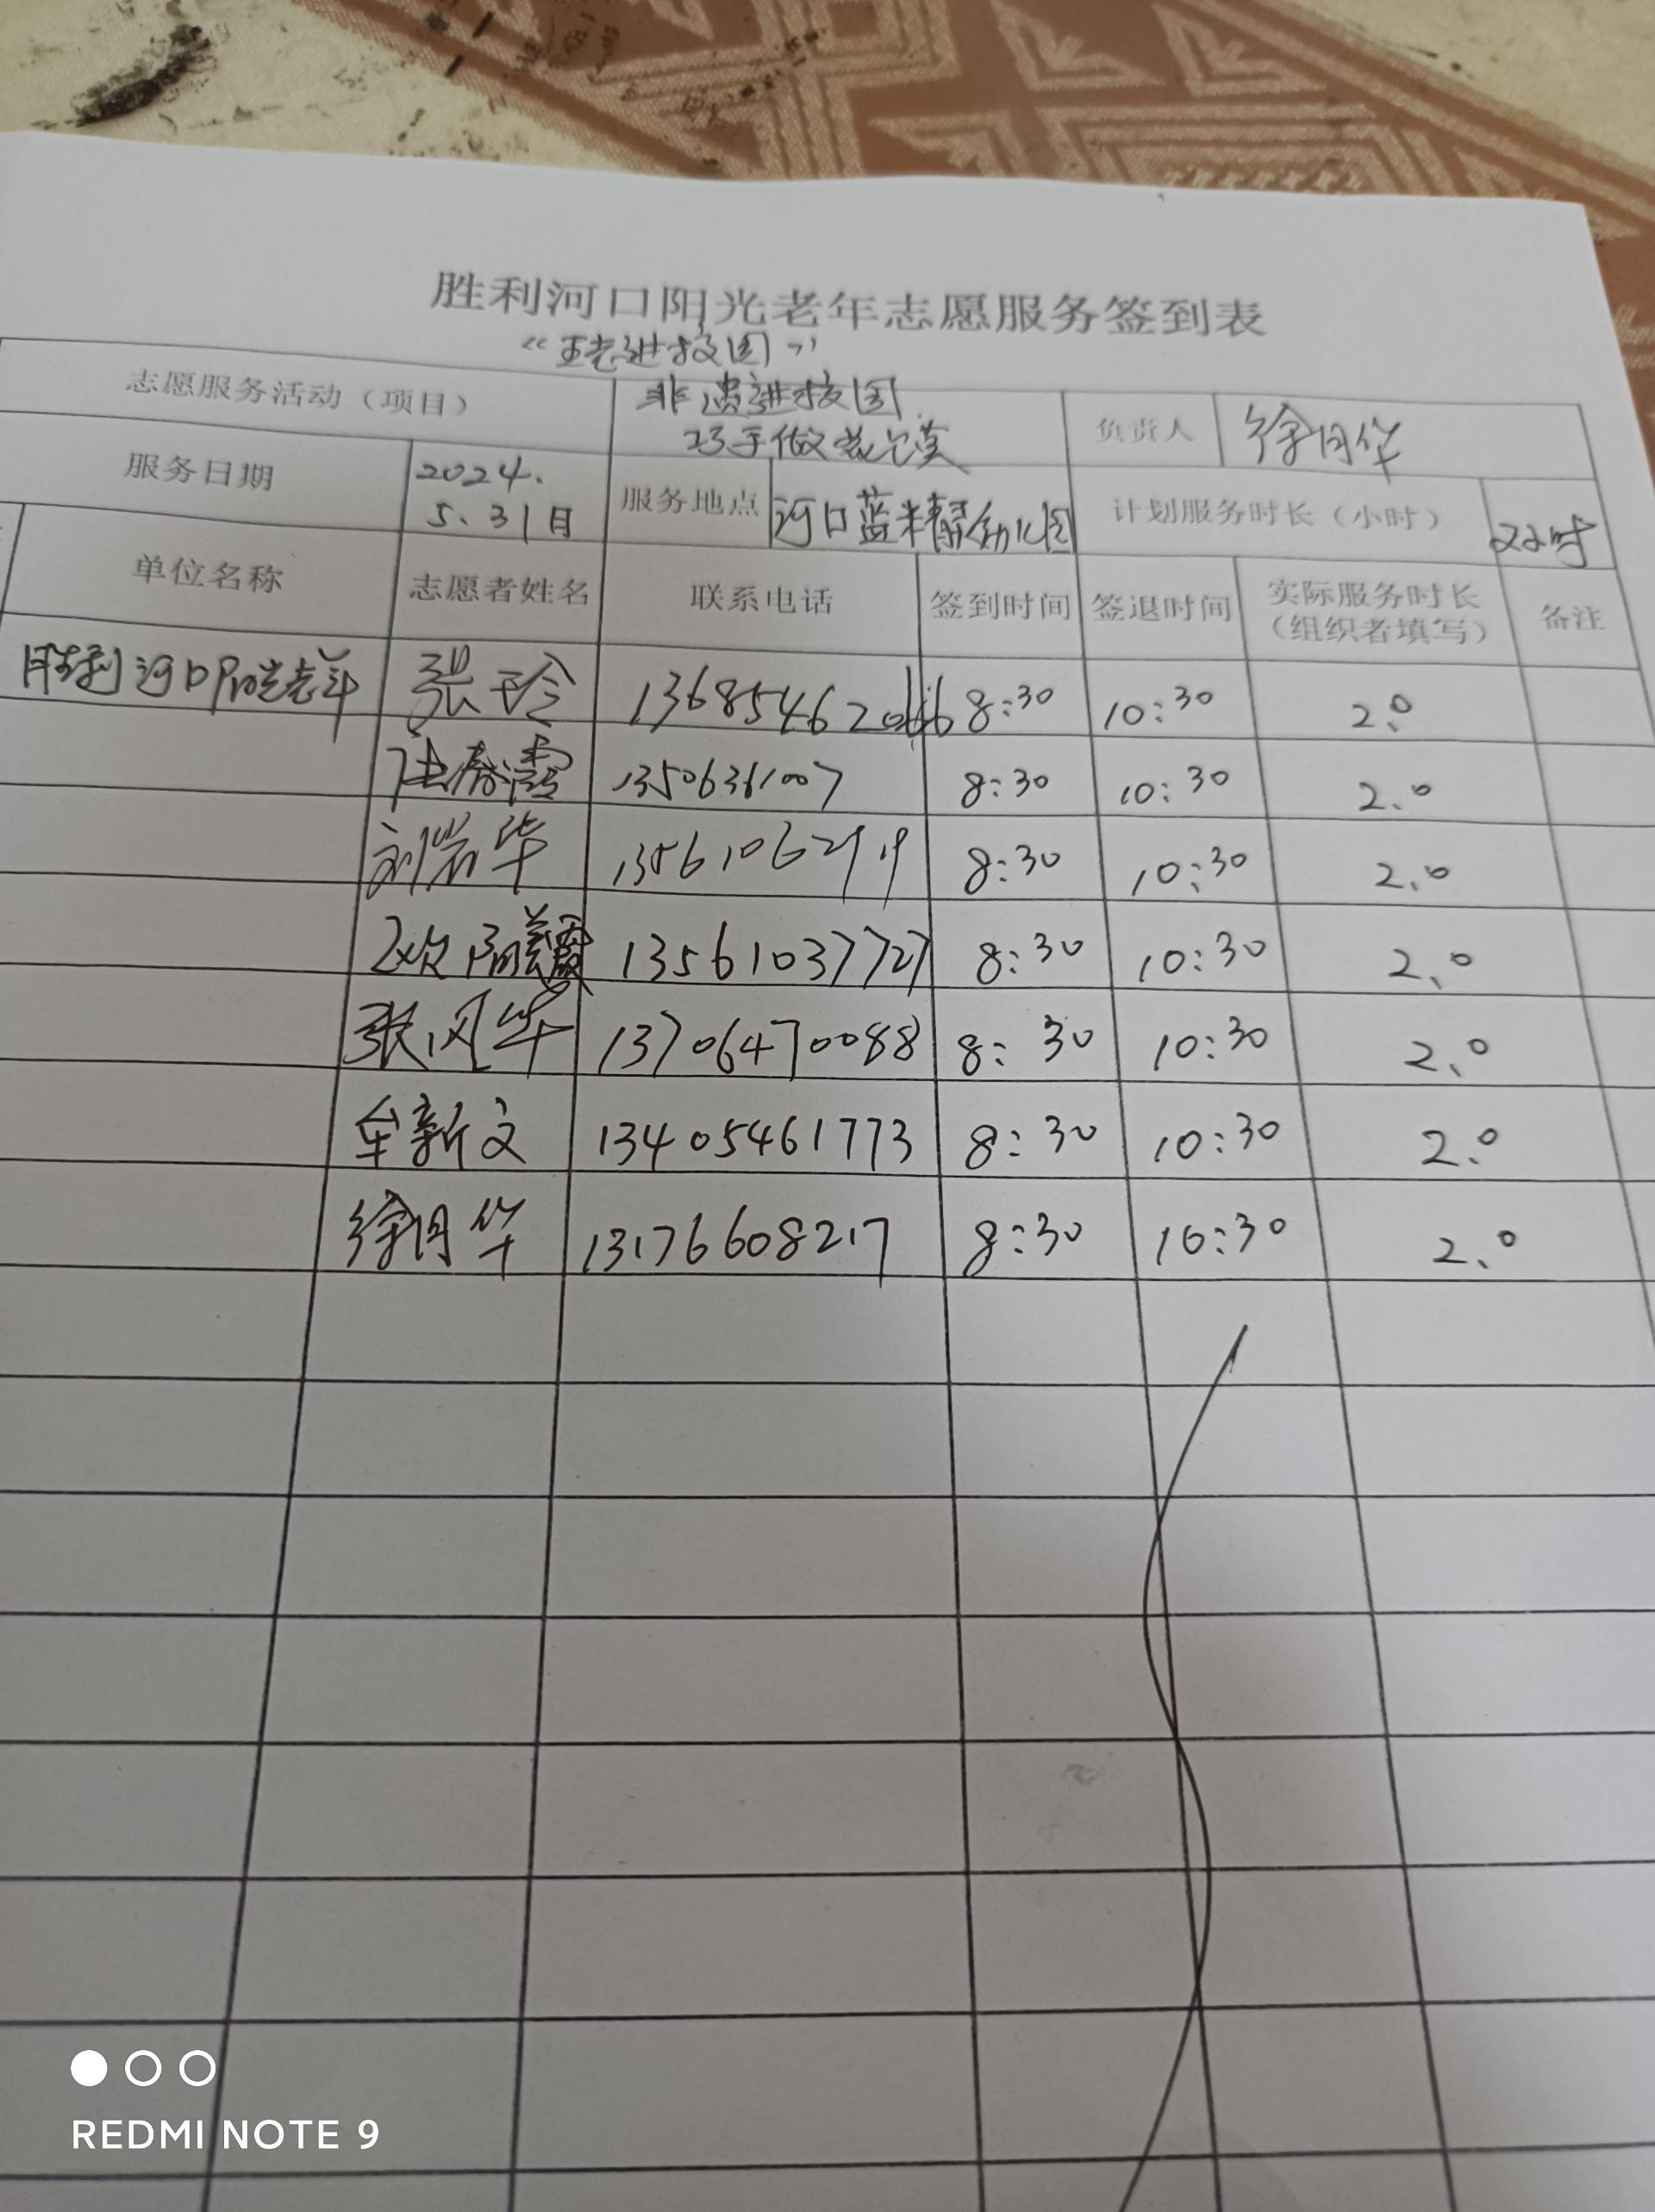 胜利河口阳光老年志愿服务签到表
"五老进校园"
志愿服务活动（项目） 非遗进校园 负责人 徐月华
巧手做
服务日期 2024. 服务地点 河口蓝精幼儿园 计划服务时长（小时） 2小时
5.31日
单位名称 志愿者姓名 联系电话 签到时间 签退时间 实际服务时长（组织者填写） 备注
胜利河口阳光老年 张玲 136854620 8:30 10:30 2.0
春霞 13506361007 8:30 10:30 2.0
刘岩华 8:30 10:30 2.0
欧阳 13561037727 8:30 10:30 2.0
张风华 13706470088 8:30 10:30 2.0
牟新文 13405461773 8:30 10:30 2.0
徐月华 13176608217 8:30 10:30 2.0
REDMI NOTE 9